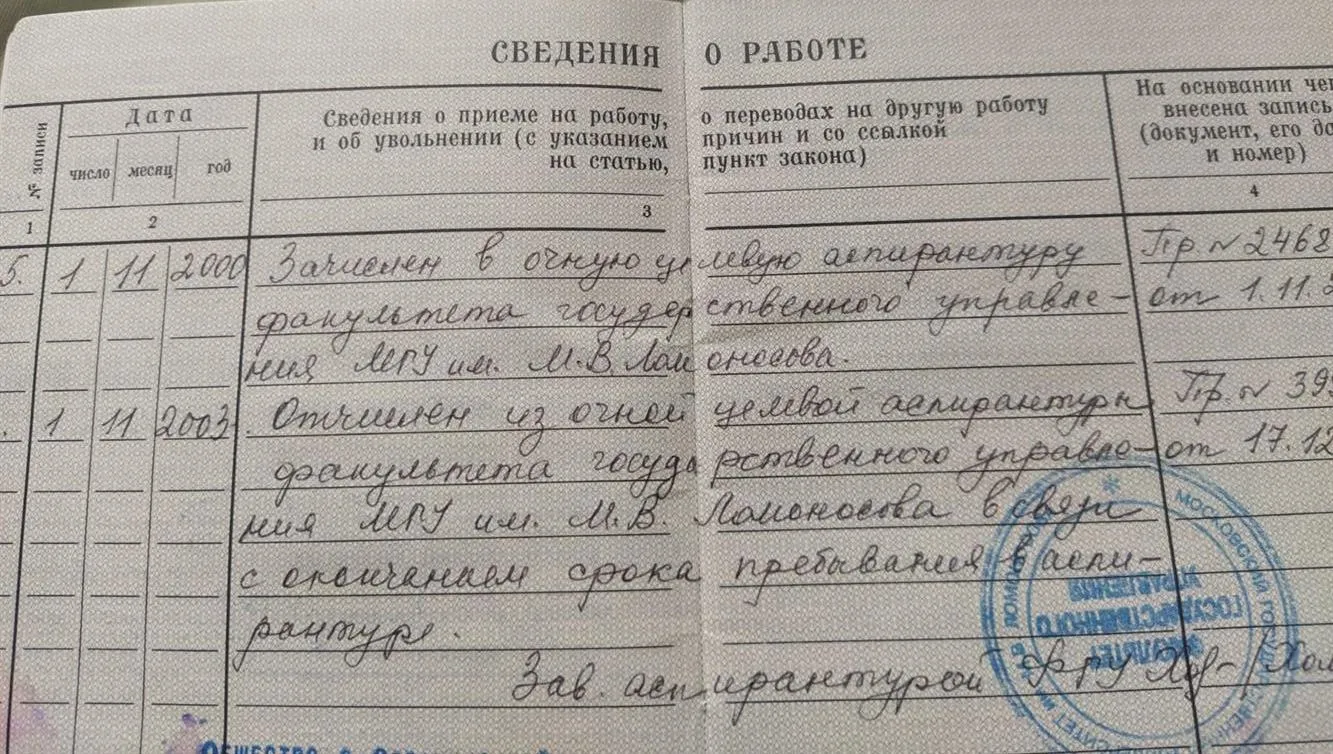 СВЕДЕНИЯ О РАБОТЕ
№ записи
Дата
число месяц год
Сведения о приеме на работу, о переводах на другую работу
и об увольнении (с указанием причин и со ссылкой
на статью, пункт закона)
На основании чег
внесена запись
(документ, его да
и номер)
1 2 3 4
5. 1 11 2000 Зачислен в очную целевую аспирантуру Пр N 2468
факультета государственного управле- от 1.11.2
ния МГУ им. М.В. Ломоносова.
1 11 2003 Отчислен из очной целевой аспирантуры Пр. N 39
факультета государственного управле- от 17.12
ния МГУ им. М.В. Ломоносова в связи
с окончанием срока пребывания в аспи-
рантуре.
Зав. аспирантурой ФГУ
МОСКОВСКИЙ
ФАКУЛЬТЕТ
ГОСУДАРСТВЕННОГО
УПРАВЛЕНИЯ